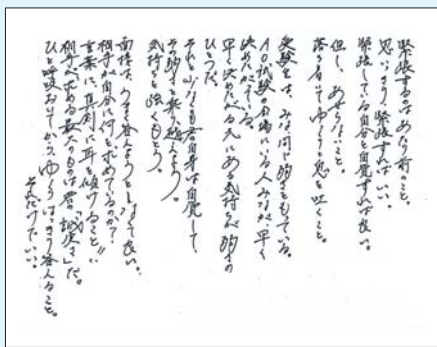 緊張するのはあたり前のこと。
思いっきり、緊張すればいい。
緊張している自分を自覚すれば良い。
但し、あせらないこと。
落ち着いてゆっくり息を吐くこと。
受験生は、みな同じ弱さをもっている。
AO試験の会場にいる人みなが、早く
決めたがっている。
早く決めたがる元にある気持ちが弱さの
ひとつだ。
それを少なくとも君自身は自覚して、
その弱さを乗り越えよう。
気持ちを強くもとう。
面接は、うまく答えようとしなくて良い。
相手が自分に何を求めているのか?
言葉に、真剣に耳を傾けること!!
相手が求める最大のものは君の「誠実さ」だ。
ひと呼吸おいてから、ゆっくりはっきり答えること。
それだけでいい。